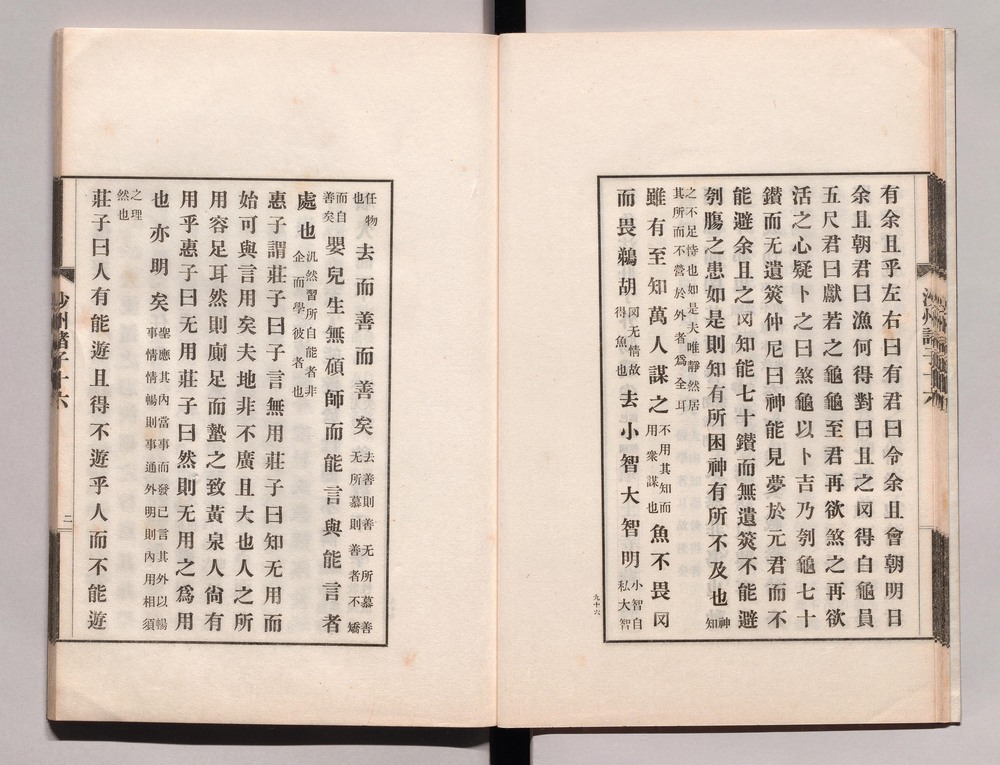 有余且乎左右曰有君曰令余且會朝明日
余且朝君曰漁何得對曰且之冈得白龜員
五尺君曰獻若之龜龜至君再欲煞之再欲
活之心疑卜之曰煞龜以卜吉乃刳龜七十
鑽而无遺筴仲尼曰神能見夢於元君而不
能避余且之冈知能七十鑽而無遺筴不能避
刳腸之患如是則知有所困神有所不及也神知
之不足恃也如是夫唯靜然居其所而不營於外者爲全耳
雖有至知萬人謀之不用其知而用衆謀也魚不畏冈
而畏鵜胡冈无情故得魚也去小智大智明小智自私大智
九十六
任物也去而善而善矣去善則善无所慕善无所慕則善者不矯
而自善矣嬰兒生無碩師而能言與能言者
處也汎然習所自能者非企而學彼者也
惠子謂莊子曰子言無用莊子曰知无用而
始可與言用矣夫地非不廣且大也人之所
用容足耳然則廁足而蟄之致黃泉人尙有
用乎惠子曰无用莊子曰然則无用之爲用
也亦明矣聖應其內當事而發已言其外以暢事情情暢則事通外明則內用相須
之理然也
莊子曰人有能遊且得不遊乎人而不能遊
沙州諸子十六
二